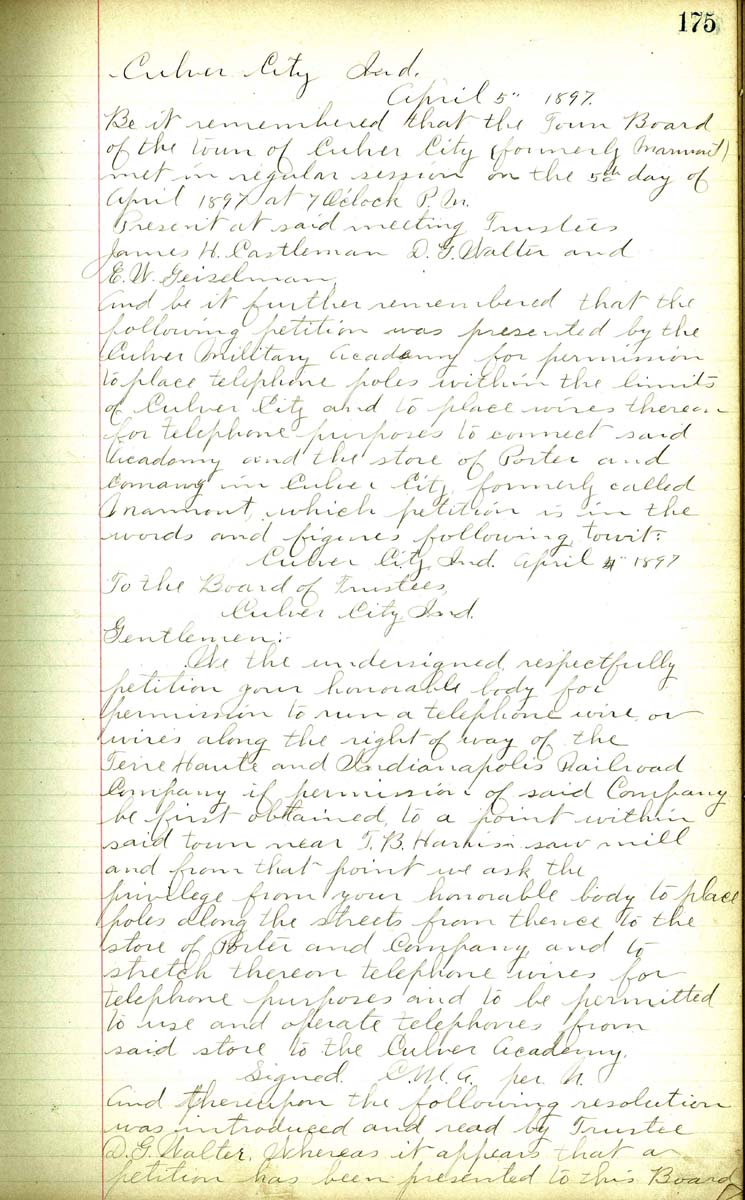 175
Culver City Ind.
April 5" 1897.
Be it remembered that the Town Board
of the town of Culver City (formerly Marmont)
met in regular session on the 5th day of
April 1897 at 7 Oclock P.M.
Present at said meeting Trustees
James H. Castleman D. G. Walter and
E. W. Geiselman,
And be it further remembered that the
following petition was presented by the
Culver Military Academy for permission
to place telephone poles within the limits
of Culver City and to place wires thereon
for telephone purposes to connect said
Academy and the store of Porter and
Comany in Culver City, formerly called
Marmont, which petition is in the
words and figures following, towit:
Culver City, Ind. April 4" 1897
To the Board of Trustees,
Culver City Ind.
Gentlemen:-
We the undersigned respectfully
petition your honorable body for
permission to run a telephone wire or
wires along the right of way of the
Terre Haute and Indianapolis Railroad
Company if permission of said Company
be first obtained, to a point within
said town near T. B. Harris saw mill
and from that point we ask the
privilege from your honorable body to place
poles along the streets from thence to the
store of Porter and Company, and to
stretch thereon telephone wires for
telephone purposes and to be permitted
to use and operate telephones from
said store to the Culver Academy.
Signed. C.M.A. per N.
And thereupon the following resolution
was introduced and read by Trustee
D. G. Walter. Whereas it appears that a
petition has been presented to this Board